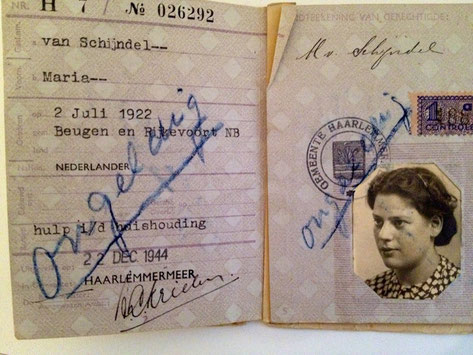 H 7 / № 026292
van Schijndel--
Maria--
2 Juli 1922
Beugen en Rijkevoort NB
NEDERLANDER
hulp i/d huishouding
22 DEC 1944
HAARLEMMERMEER
Ongeldig
DTEEKENING VAN GERECHTIGDE
M. v. Schijndel
1
CONTROL
GEMEENTE HAARLEMM
ongeldig